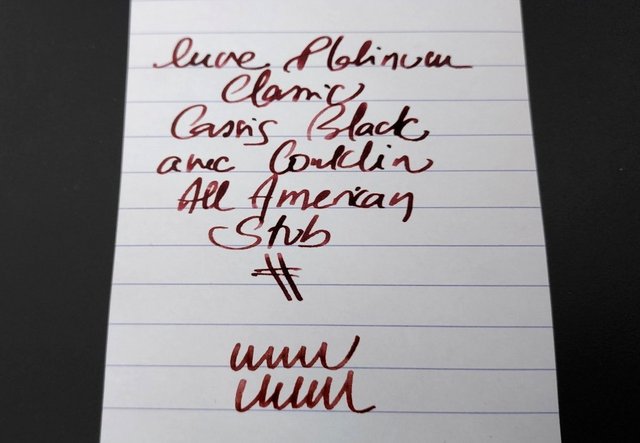 Encre Platinum
Classic
Cassis Black
avec Conklin
All American
Stub
#